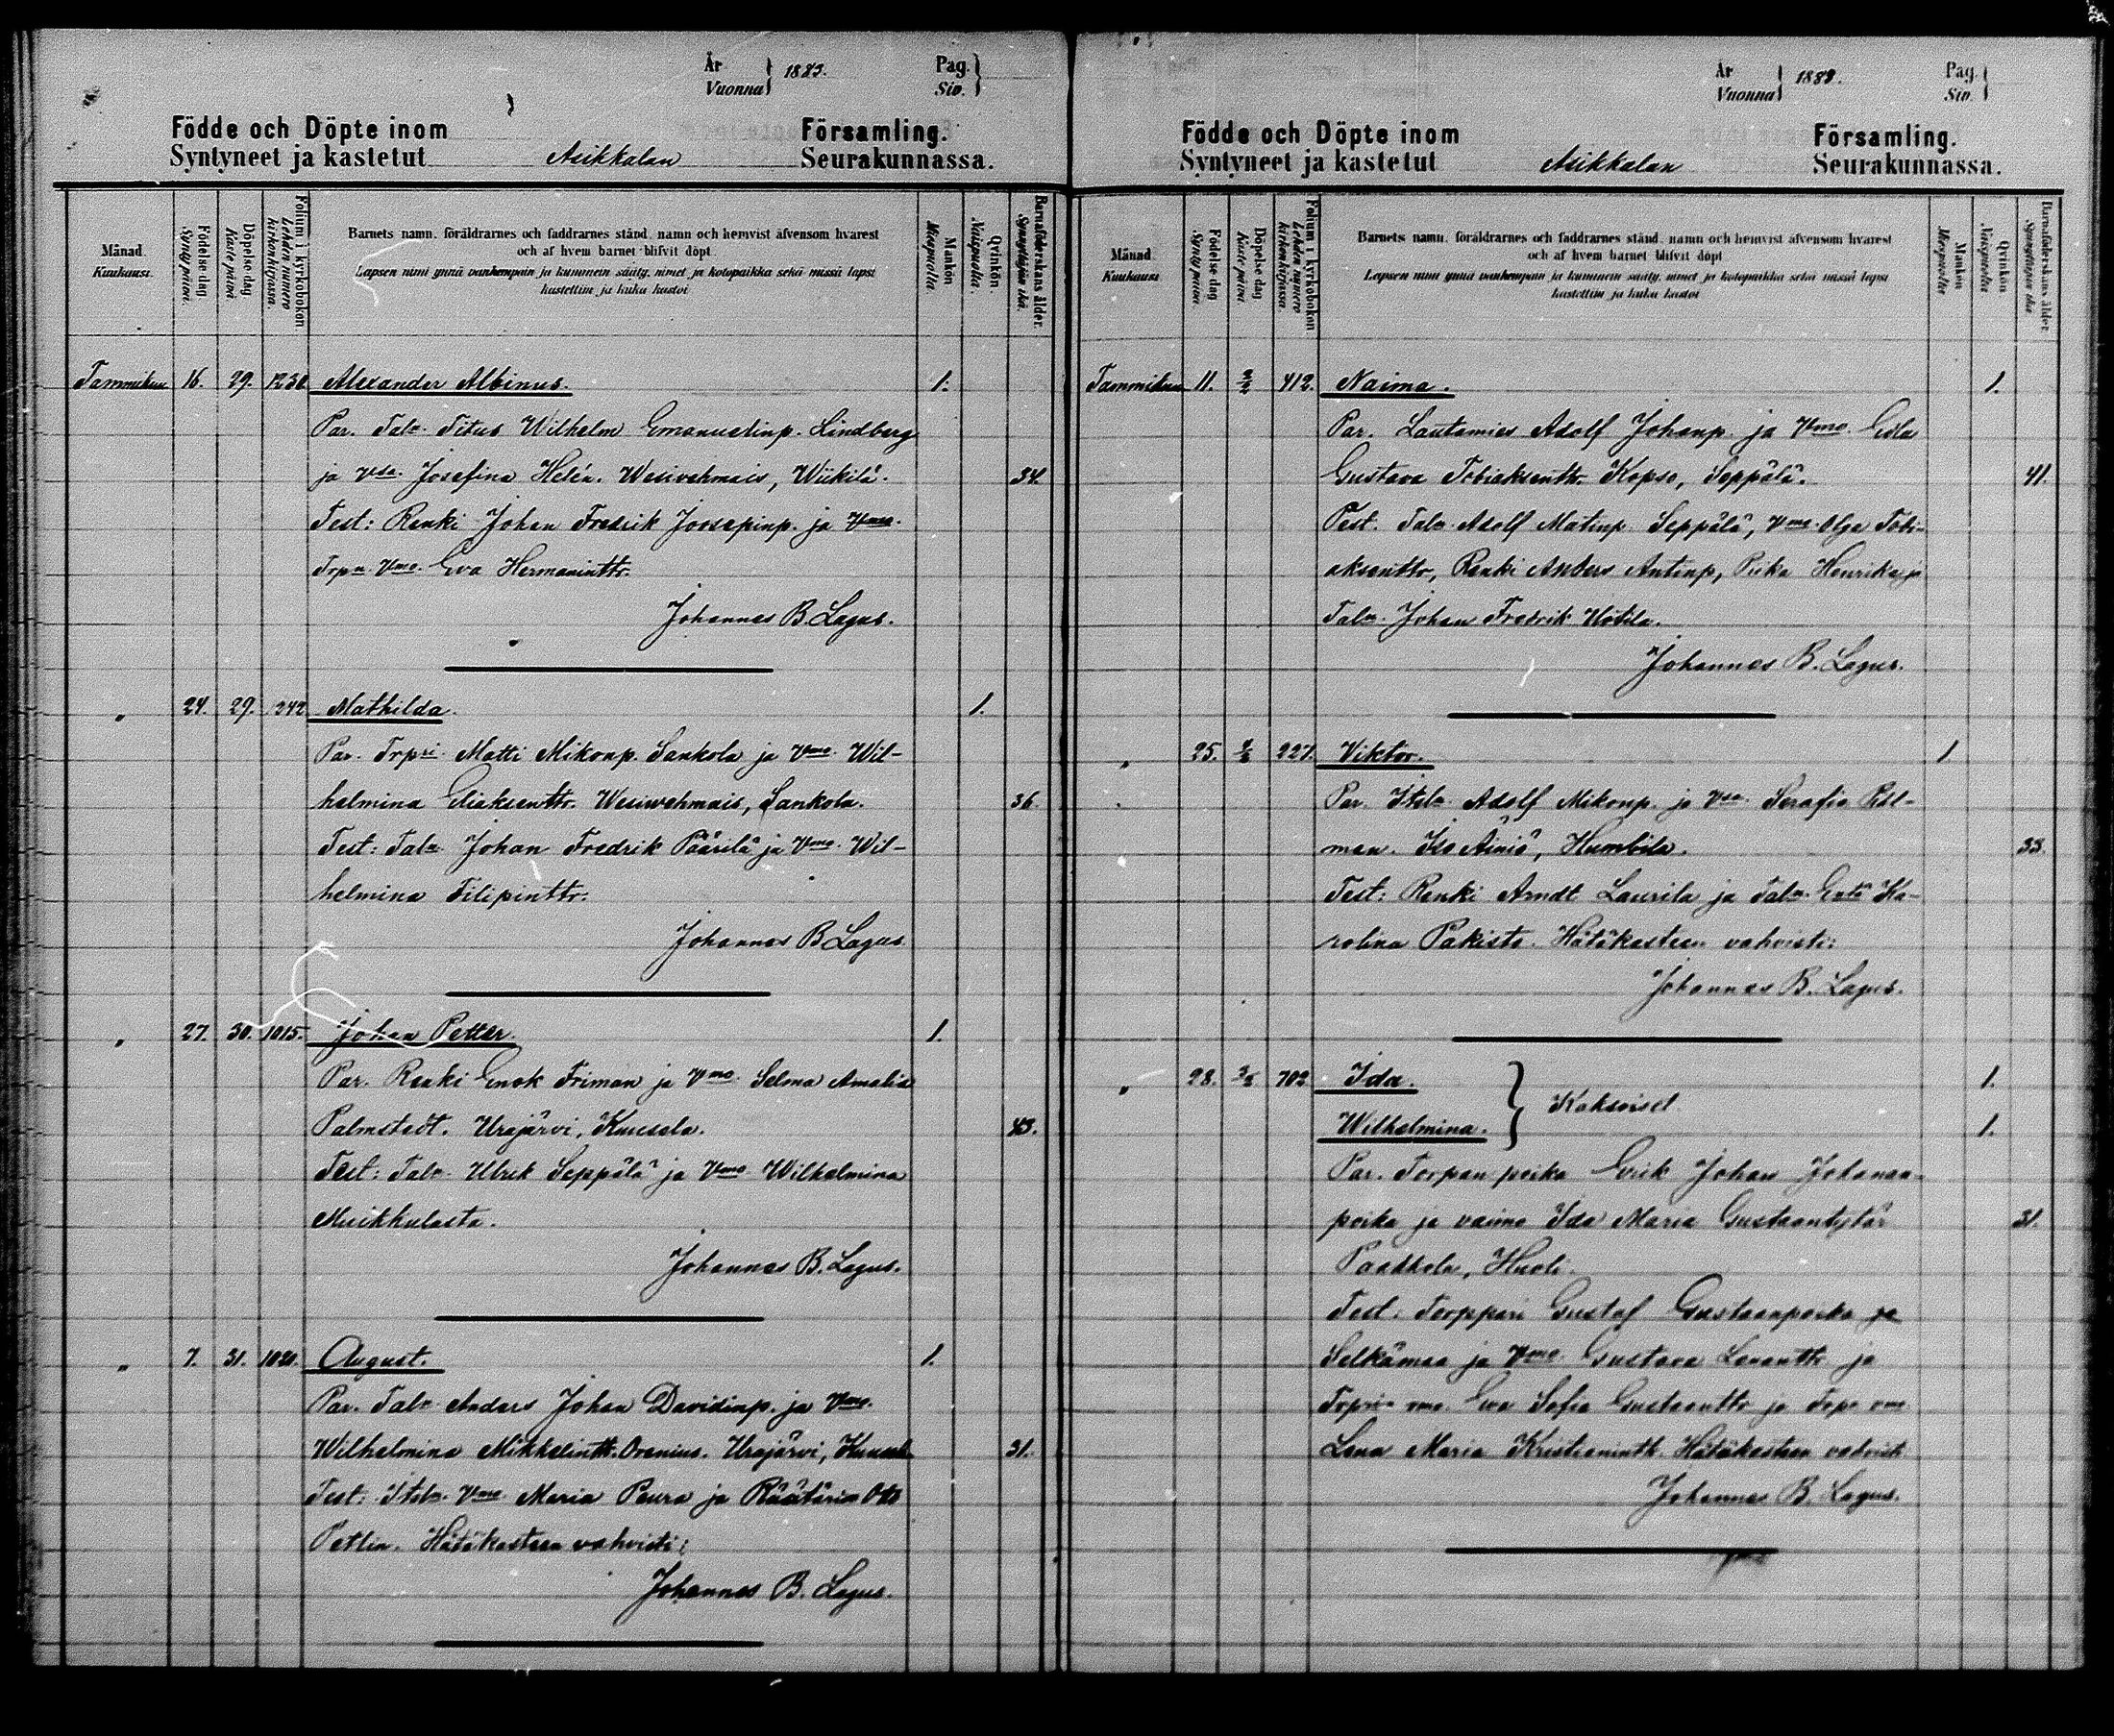 År
Vuonna } 1883.
Pag.
Siv. }
Födde och Döpte inom Församling.
Syntyneet ja kastetut Asikkalan Seurakunnassa.
Månad.
Kuukausi.
Födelse dag
Synty päivä.
Döpelse dag
Kaste päivä
Folium i kyrkoboken
Lehden numero
kirkonkirjassa.
Barnets namn, föräldrarnes och faddrarnes stånd, namn och hemvist äfvensom hvarest
och af hvem barnet blifvit döpt.
Lapsen nimi ynnä vanhempain ja kummein sääty, nimet ja kotopaikka sekä missä lapsi
kastettiin ja kuka kastoi
Mankön
Miespuolia.
Qvinkön.
Vaispuolia.
Barnaföderskans ålder.
Synnyttäjän ikä.
Tammikuu 16. 29. 1230 Alexander Albinus. 1.
Par. Taln. Titus Wilhelm Emanuelinp. Lindberg
ja Vsa. Josefina Helén. Wesivehmais, Wiikilä. 34.
Test: Renki Johan Fredrik Joosepinp. ja Vmo.
Trpn. Vmo. Eva Hermaninttr.
Johannes B. Lagus.
„ 24. 29. 242 Mathilda. 1.
Par. Trpri. Matti Mikonp. Sankola ja Vmo. Wil-
helmina Eliaksenttr. Wesivehmais, Sankola. 36.
Test: Taln. Johan Fredrik Päärilä ja Vmo. Wil-
helmina Filipinttr.
Johannes B Lagus.
„ 27. 30. 1015. Johan Petter 1.
Par. Renki Enok Friman ja Vmo. Selma Amalia
Palmstedt. Urajärvi, Kuusela. 43.
Test: Taln. Ulrik Seppälä ja Vmo. Wilhelmina
Muikkulasta.
Johannes B. Lagus.
„ 7. 31. 1020. August. 1.
Par. Taln. Anders Johan Davidinp. ja Vmo.
Wilhelmina Mikkelinttr. Orenius. Urajärvi, Kuusela 31.
Test: Itsln. Vmo. Maria Peura ja Räätärin Otto
Petlin. Hätäkasteen vahvisti:
Johannes B. Lagus.
År
Vuonna } 1883.
Pag.
Siv. }
Födde och Döpte inom Församling.
Syntyneet ja kastetut Asikkalan Seurakunnassa.
Månad
Kuukausi
Födelse dag
Synty päivä.
Döpelse dag
Kaste päivä
Folium i kyrkoboken
Lehden numero
kirkonkirjassa.
Barnets namn, föräldrarnes och faddrarnes stånd, namn och hemvist äfvensom hvarest
och af hvem barnet blifvit döpt
Lapsen nimi ynnä vanhempain ja kummein sääty, nimet ja kotopaikka sekä missä lapsi
kastettiin ja kuka kastoi
Mankön
Miespuolia
Qvinkön
Vaispuolia
Barnaföderskans ålder
Synnyttäjän ikä
Tammikuu 11. 412. Naima. 1.
Par. Lautamies Adolf Johanp. ja Vmo. Eila
Gustava Tobiaksenttr. Kopso, Seppälä. 41.
Test. Taln. Adolf Matinp. Seppälä, Vmo. Olga Tobi-
aksenttr, Renki Anders Antinp, Piika Henrika ja
Taln. Johan Fredrik Uotila.
Johannes B. Lagus.
„ 25. 227. Viktor. 1
Par. Itsln. Adolf Mikonp. ja Vsa. Serafia Pihl-
man. Iso Äiniö, Humbila. 33.
Test: Renki Arndt Laurila ja Taln. Ka-
rolina Pakista. Hätäkasteen vahvisti:
Johannes B. Lagus.
„ 28. 702 Ida. } Kaksoiset. 1.
Wilhelmina. 1.
Par. Torpan poika Erik Johan Johanan-
poika ja vaimo Ida Maria Gustaantytär 31.
Paakkola, Huoli.
Test: Torppari Gustaf Gustaanpoika ja
Selkämaa ja Vmo. Gustava Leenanttr ja
Trprin vmo. Eva Sofia Gustaanttr ja Trpn vmo
Lena Maria Kristianintt. Hätäkasteen vahvisti
Johannes B. Lagus.